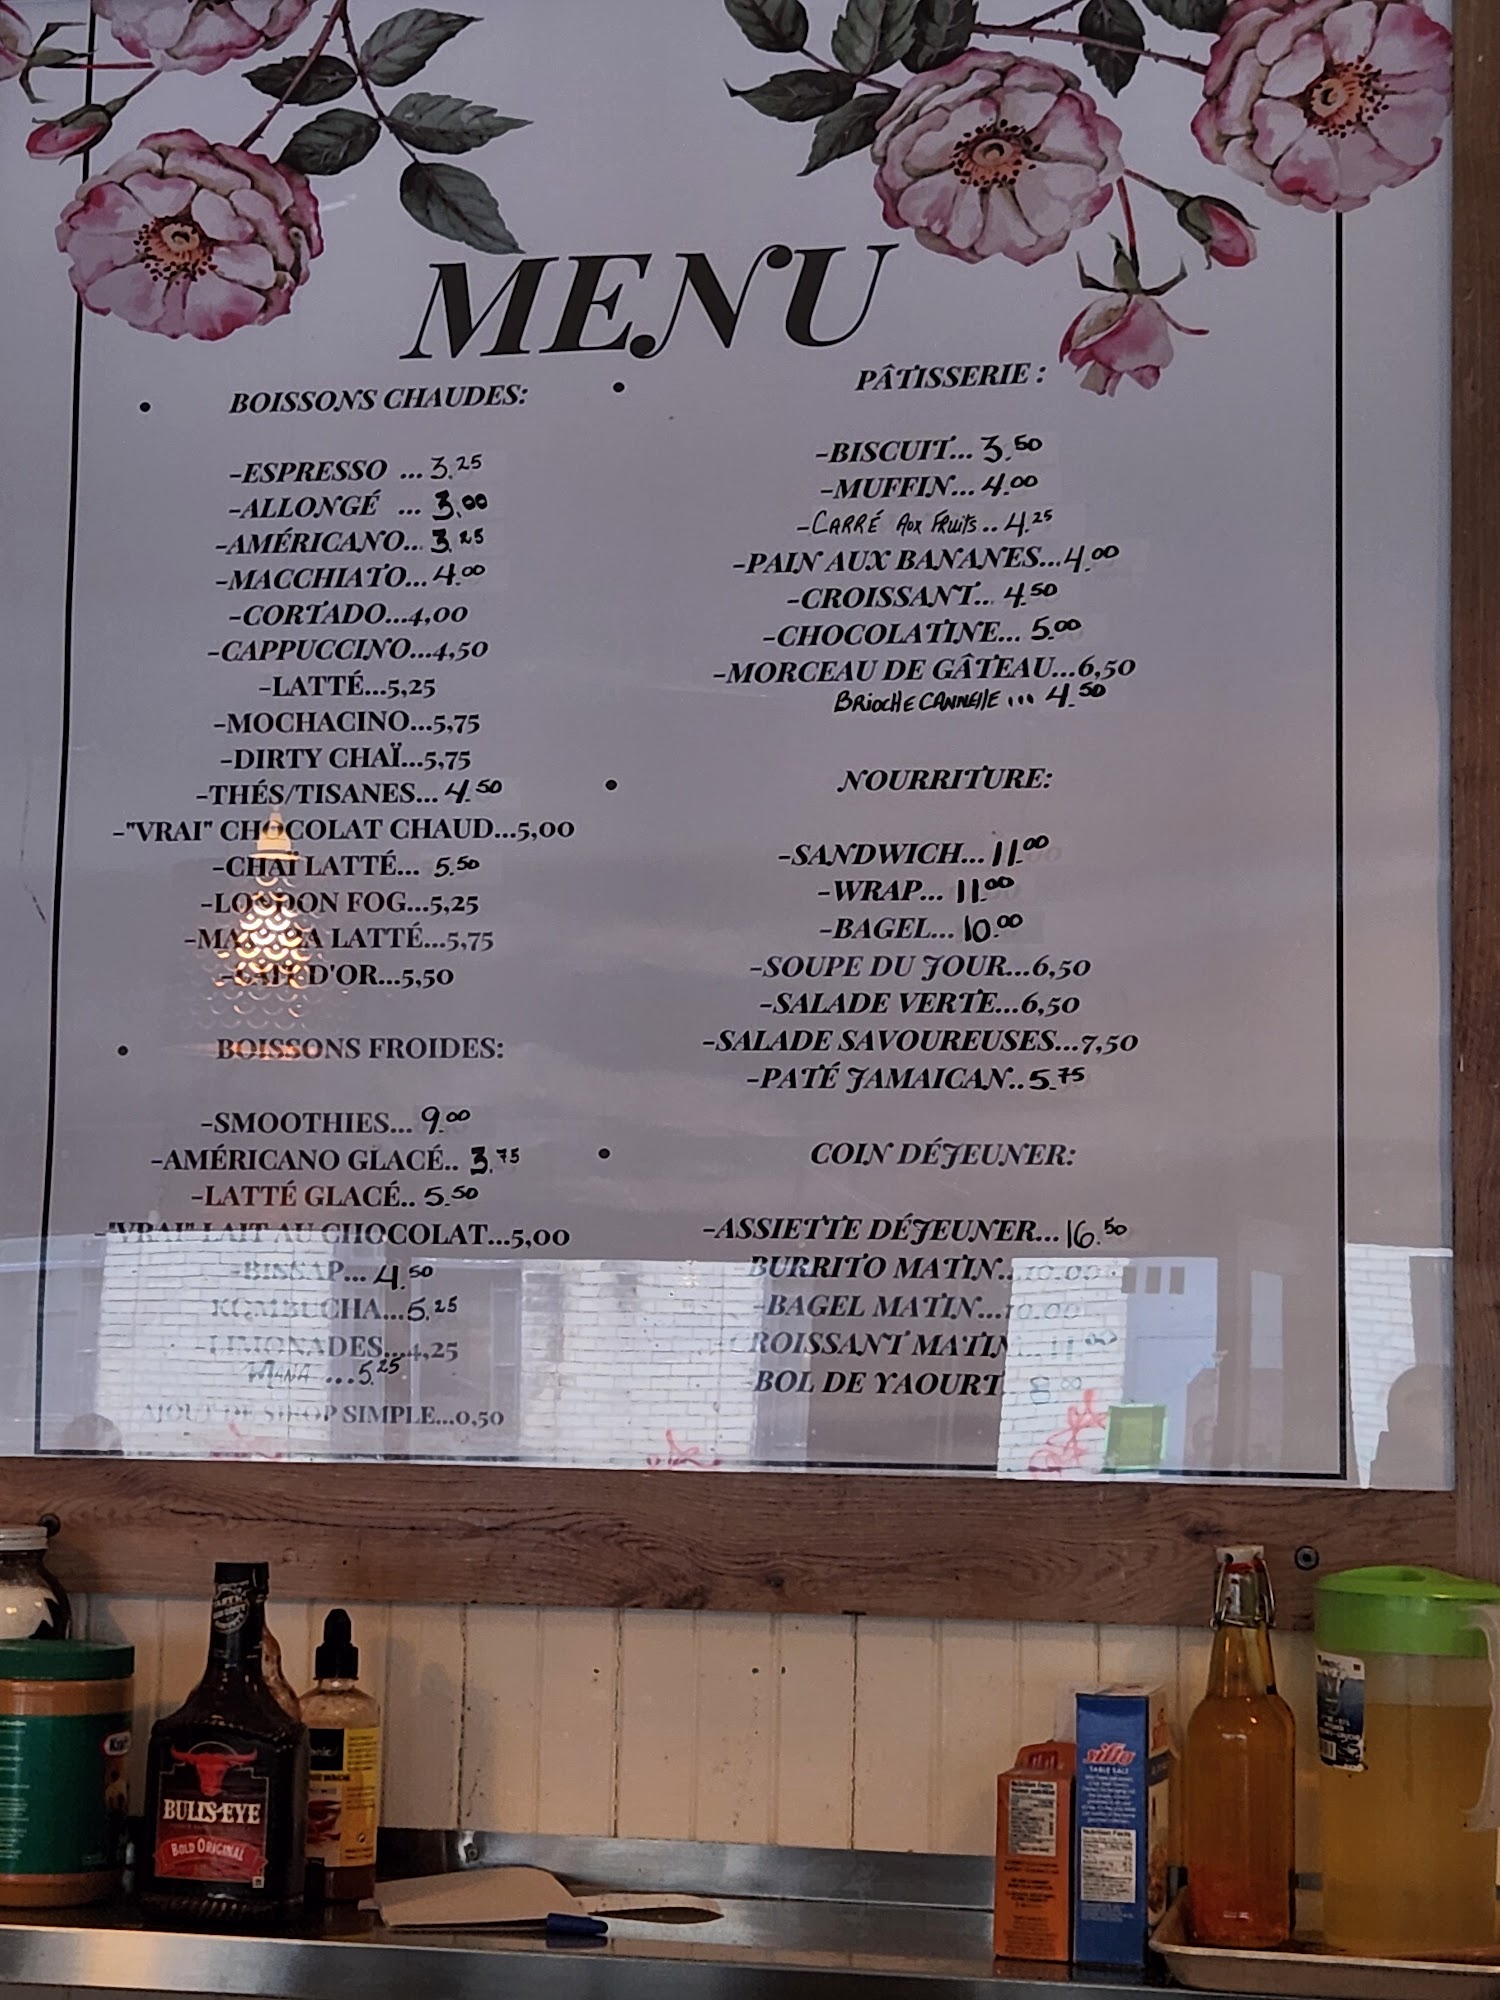 MENU
BOISSONS CHAUDES:
-ESPRESSO ... 3.25
-ALLONGÉ ... 3.00
-AMÉRICANO... 3.25
-MACCHIATO... 4.00
-CORTADO...4,00
-CAPPUCCINO...4,50
-LATTÉ...5,25
-MOCHACINO...5,75
-DIRTY CHAÏ...5,75
-THÉS/TISANES... 4.50
-"VRAI" CHOCOLAT CHAUD...5,00
-CHAÏ LATTÉ... 5.50
-LONDON FOG...5,25
LATTÉ...5,75
D'OR...5,50
BOISSONS FROIDES:
-SMOOTHIES... 9.00
-AMÉRICANO GLACÉ.. 3.75
-LATTÉ GLACÉ.. 5.50
-"VRAI" LAIT AU CHOCOLAT...5,00
-BISSAP... 4.50
KOMBUCHA...5.25
-LIMONADES...4,25
MANA ...5.25
AJOUT DE SIROP SIMPLE...0,50
PÂTISSERIE :
-BISCUIT... 3.50
-MUFFIN... 4.00
-CARRÉ Aux FRuits.. 4.25
-PAIN AUX BANANES...4.00
-CROISSANT... 4.50
-CHOCOLATINE... 5.00
-MORCEAU DE GÂTEAU...6,50
BRiOCHE CANNElle ... 4.50
NOURRITURE:
-SANDWICH... 11.00
-WRAP... 11.00
-BAGEL... 10.00
-SOUPE DU JOUR...6,50
-SALADE VERTE...6,50
-SALADE SAVOUREUSES...7,50
-PATÉ JAMAICAN.. 5.75
COIN DÉJEUNER:
-ASSIETTE DÉJEUNER... 16.50
BURRITO MATIN...10.00
-BAGEL MATIN...10.00
CROISSANT MATIN... 11.00
BOL DE YAOURT 8.00
BULL'S-EYE
BOLD ORIGINAL
Sifto
TABLE SALT
Nutrition Facts